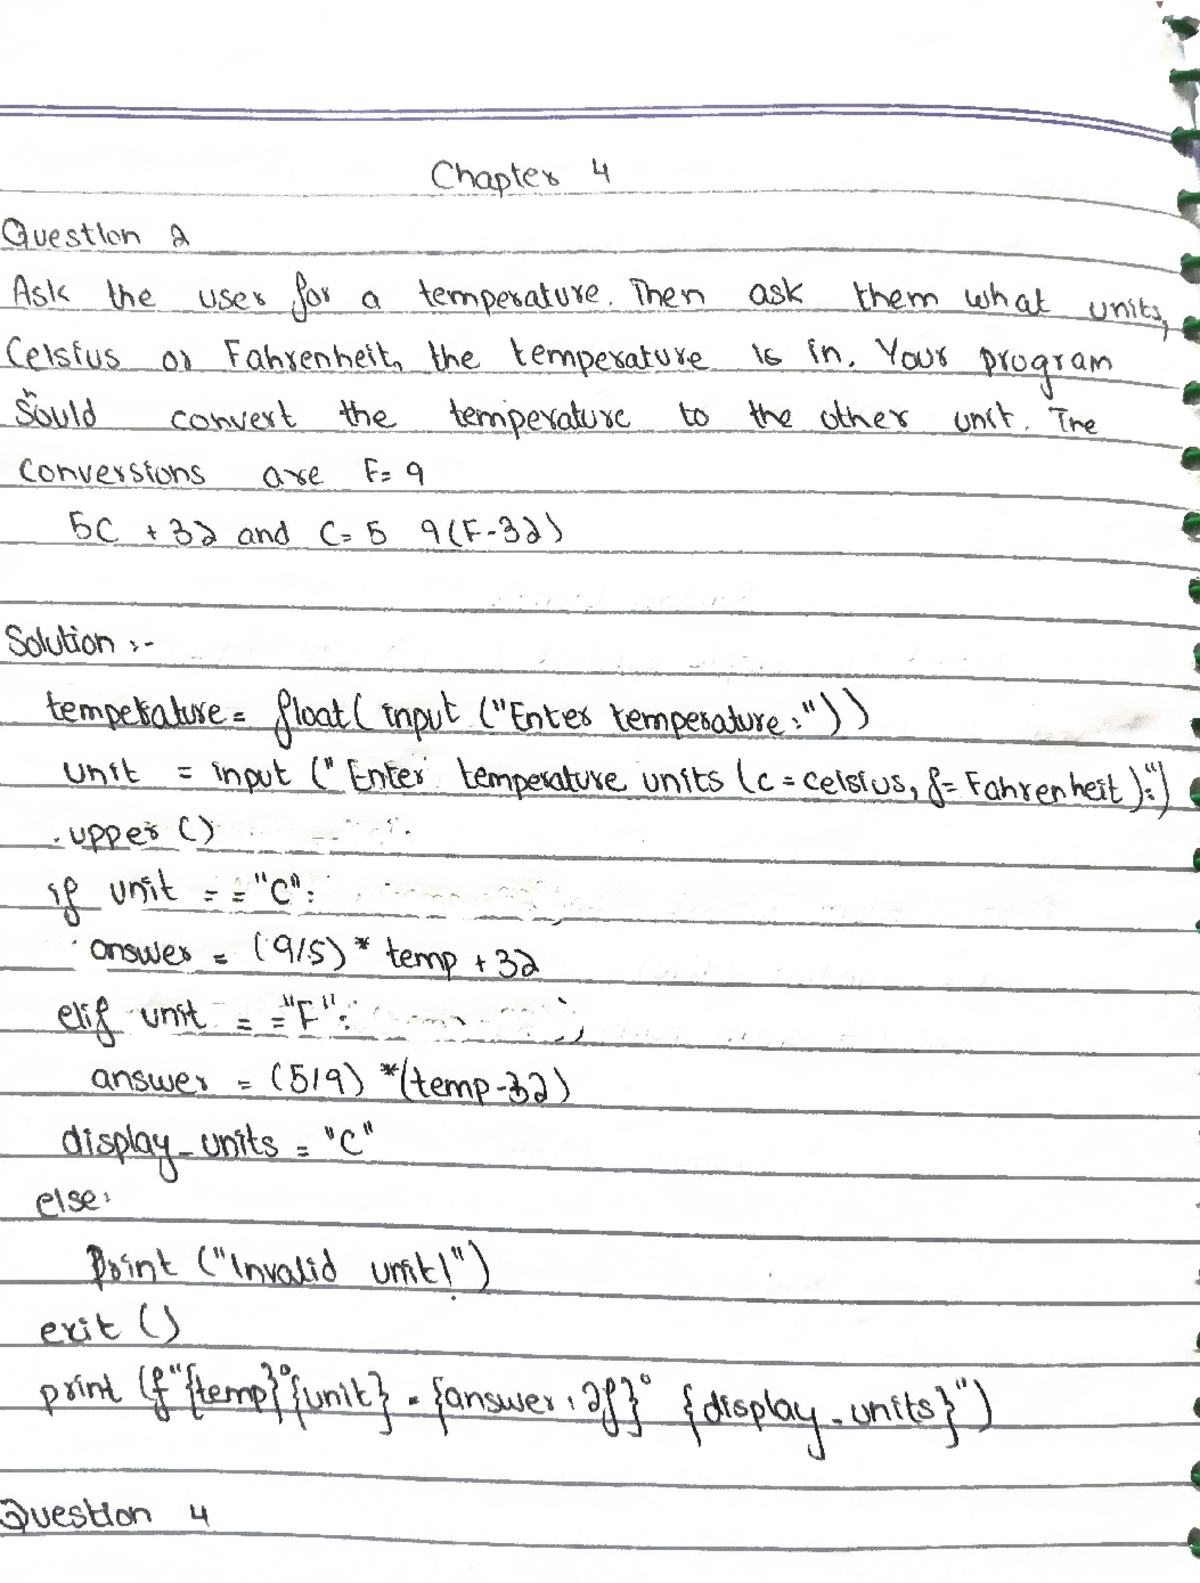 Chapter 4
Question 2
Ask the user for a temperature. Then ask them what units,
Celsius or Fahrenheit, the temperature is in. Your program
sould convert the temperature to the other unit. The
conversions are F= 9
5C +32 and C= 5 9(F-32)
Solution :-
temperature = float( input ("Enter temperature:"))
unit = input ("Enter temperature units (c = celsius, f= Fahrenheit):")
.upper ()
if unit = ="C":
answer = (9/5)* temp +32
elif unit = ="F":
answer = (5/9) *(temp-32)
display_units = "C"
else:
print ("Invalid unit!")
exit ()
print (f"{temp}°{unit} = {answer:2f}° {display_units}")
Question 4